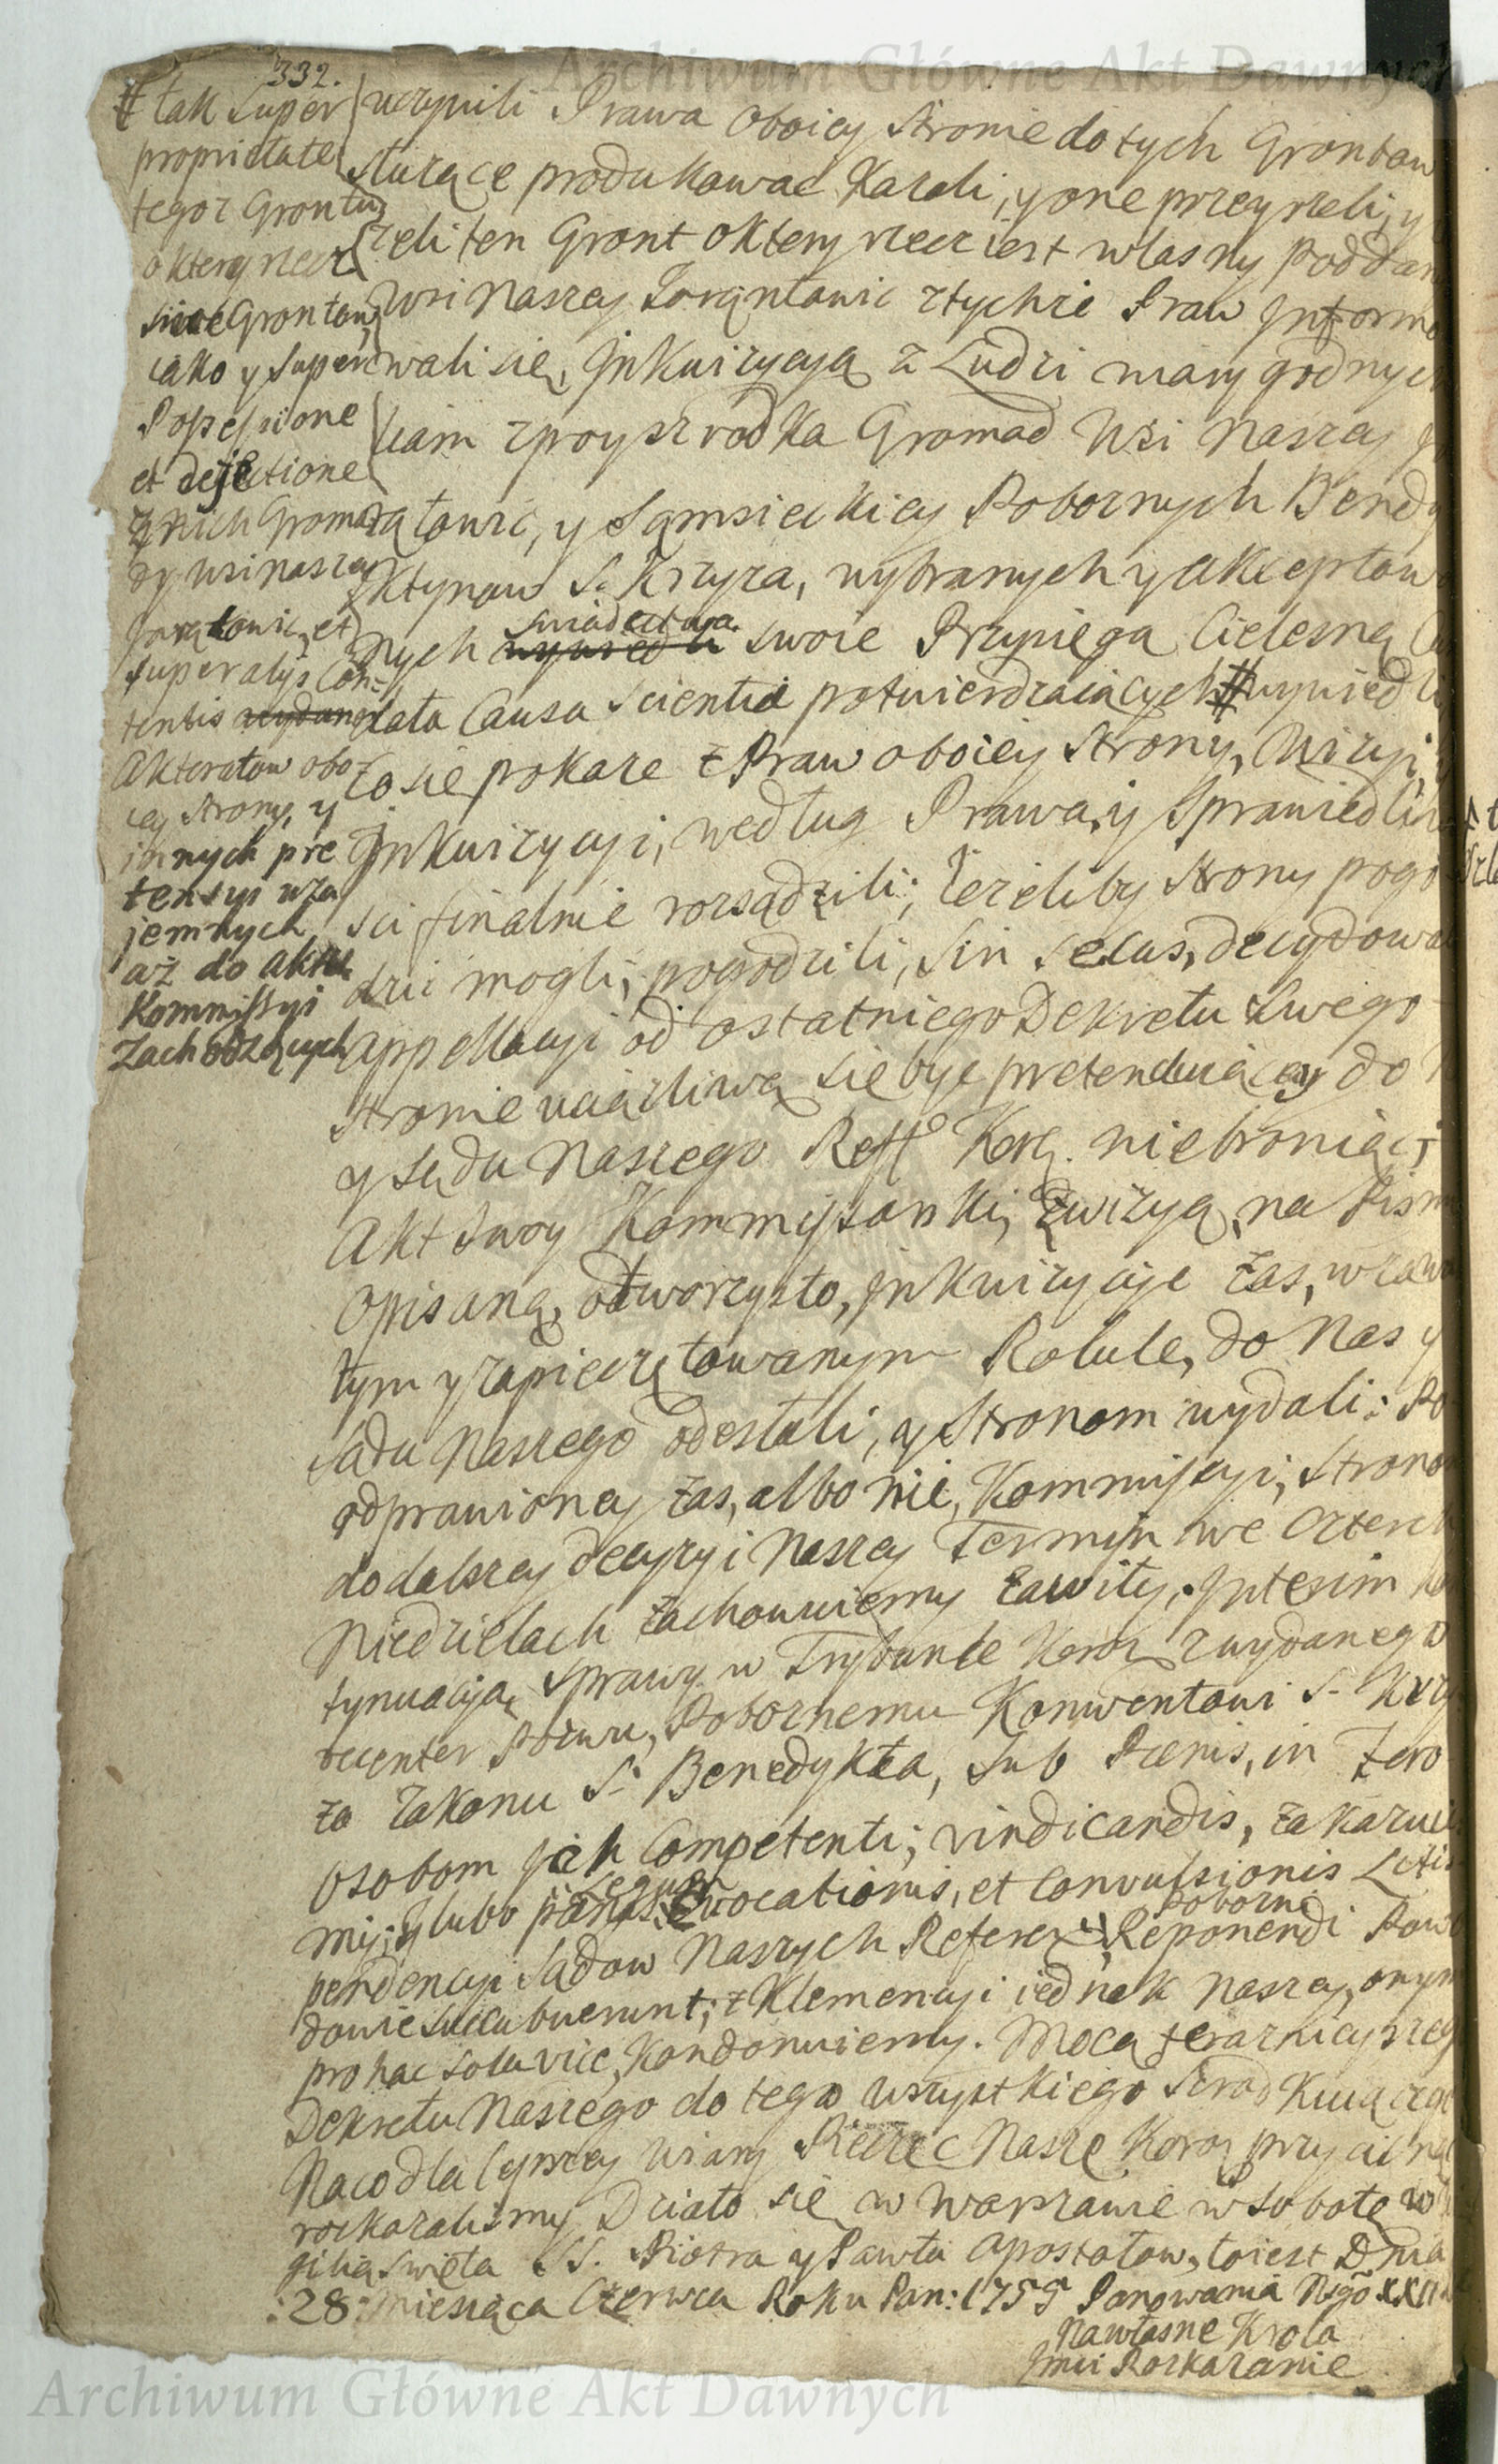 Archiwum Główne Akt Dawnych
332.
# tak super
proprietate
tegoż Grontu
o ktery rzecz
Grontow,
iako y super
Possessione
et dejectione
z nich Groma
dy wsi naszey
et
super alys Con=
tentis
Akteratow obo
iey strony, y
innych pre
tensyi wza
jemnych
aż do aktu
Kommissyi
zachodzących
uczynili Prawa oboiey stronie do tych Grontow
sluzące produkowac Kazali, y one przeyrzeli, y
zeli ten Gront o ktery rzecz iest wlasny poddan
wsi Naszey ztychze Praw Informo
wali się, Inkwizycyą z Ludzi wiary godnych
tam zpoyszrodka Gromad Wsi Naszey
y Pobożnych Bendy
ktynow S. Krzyża, wybranych y akceptow
nych swiadectwa swoie Przysięgą Cielesną
data Causa Scientiæ potwierdzaiących # wywiedli
Co się pokaże z Praw oboiey strony, Wizyi,
Inkwizycyi, według Prawa, y Sprawiedliwo
sci finalnie rozsądzili; Ieżeliby strony pogo
dzić mogli, pogodzili, sin secus, decydowali
Appellacyi od ostatniego Dekretu swego
stronie uciążliwą się byc pretenduiącey do
y Sądu Naszego Reffo Korą. niebroniąc;
Akt swoy Kommissorski, z wizyą, na Pism
opisaną, otworzysto, Inkwizycye zas, w zaw
tym y zapieczętowanym Rotule, do Nas y
Sądu Naszego odesłali, y stronom wydali; Po
odprawioney zas, albo nie, Kommissyi, strono
do dalszey decyzyi Naszey Termin we czterech
Niedzielach zachowuiemy zawity, Interim Ko
tynuacyą sprawy w Trybunale Koro zwydanego
recenter Pozwu, Pobożnemu Konwentowi S. Krzy
za Zakonu S. Benedykta, sub Pœnis, in Foro
osobom Competenti; vindicandis, zakazuie
my; y lubo pœnas Legum Evocationis, et Convulsionis Litis
pendencyi Sądow Naszych Referen, Reponendi Pobożni Pow
dowie succubuerunt; z Klemencyi iednak Naszey, onym
pro hac sola vice, Kondonuiemy. Mocą terazniejszeg
Dekretu Naszego do tego wszystkiego
Na co dla lepszey wiary Pieczęć Naszę Koroą przycisnąć
rozkazalismy Działo się w Warszawie w Sobotę w
gilią Swięta SS. Piotra y Pawła Apostołow, to iest Dnia
:28: Miesiąca Czerwca Roku Pan: 1755 Panowania Ngo XXII
Na własne Krola
Jmci Rozkazanie
Archiwum Główne Akt Dawnych